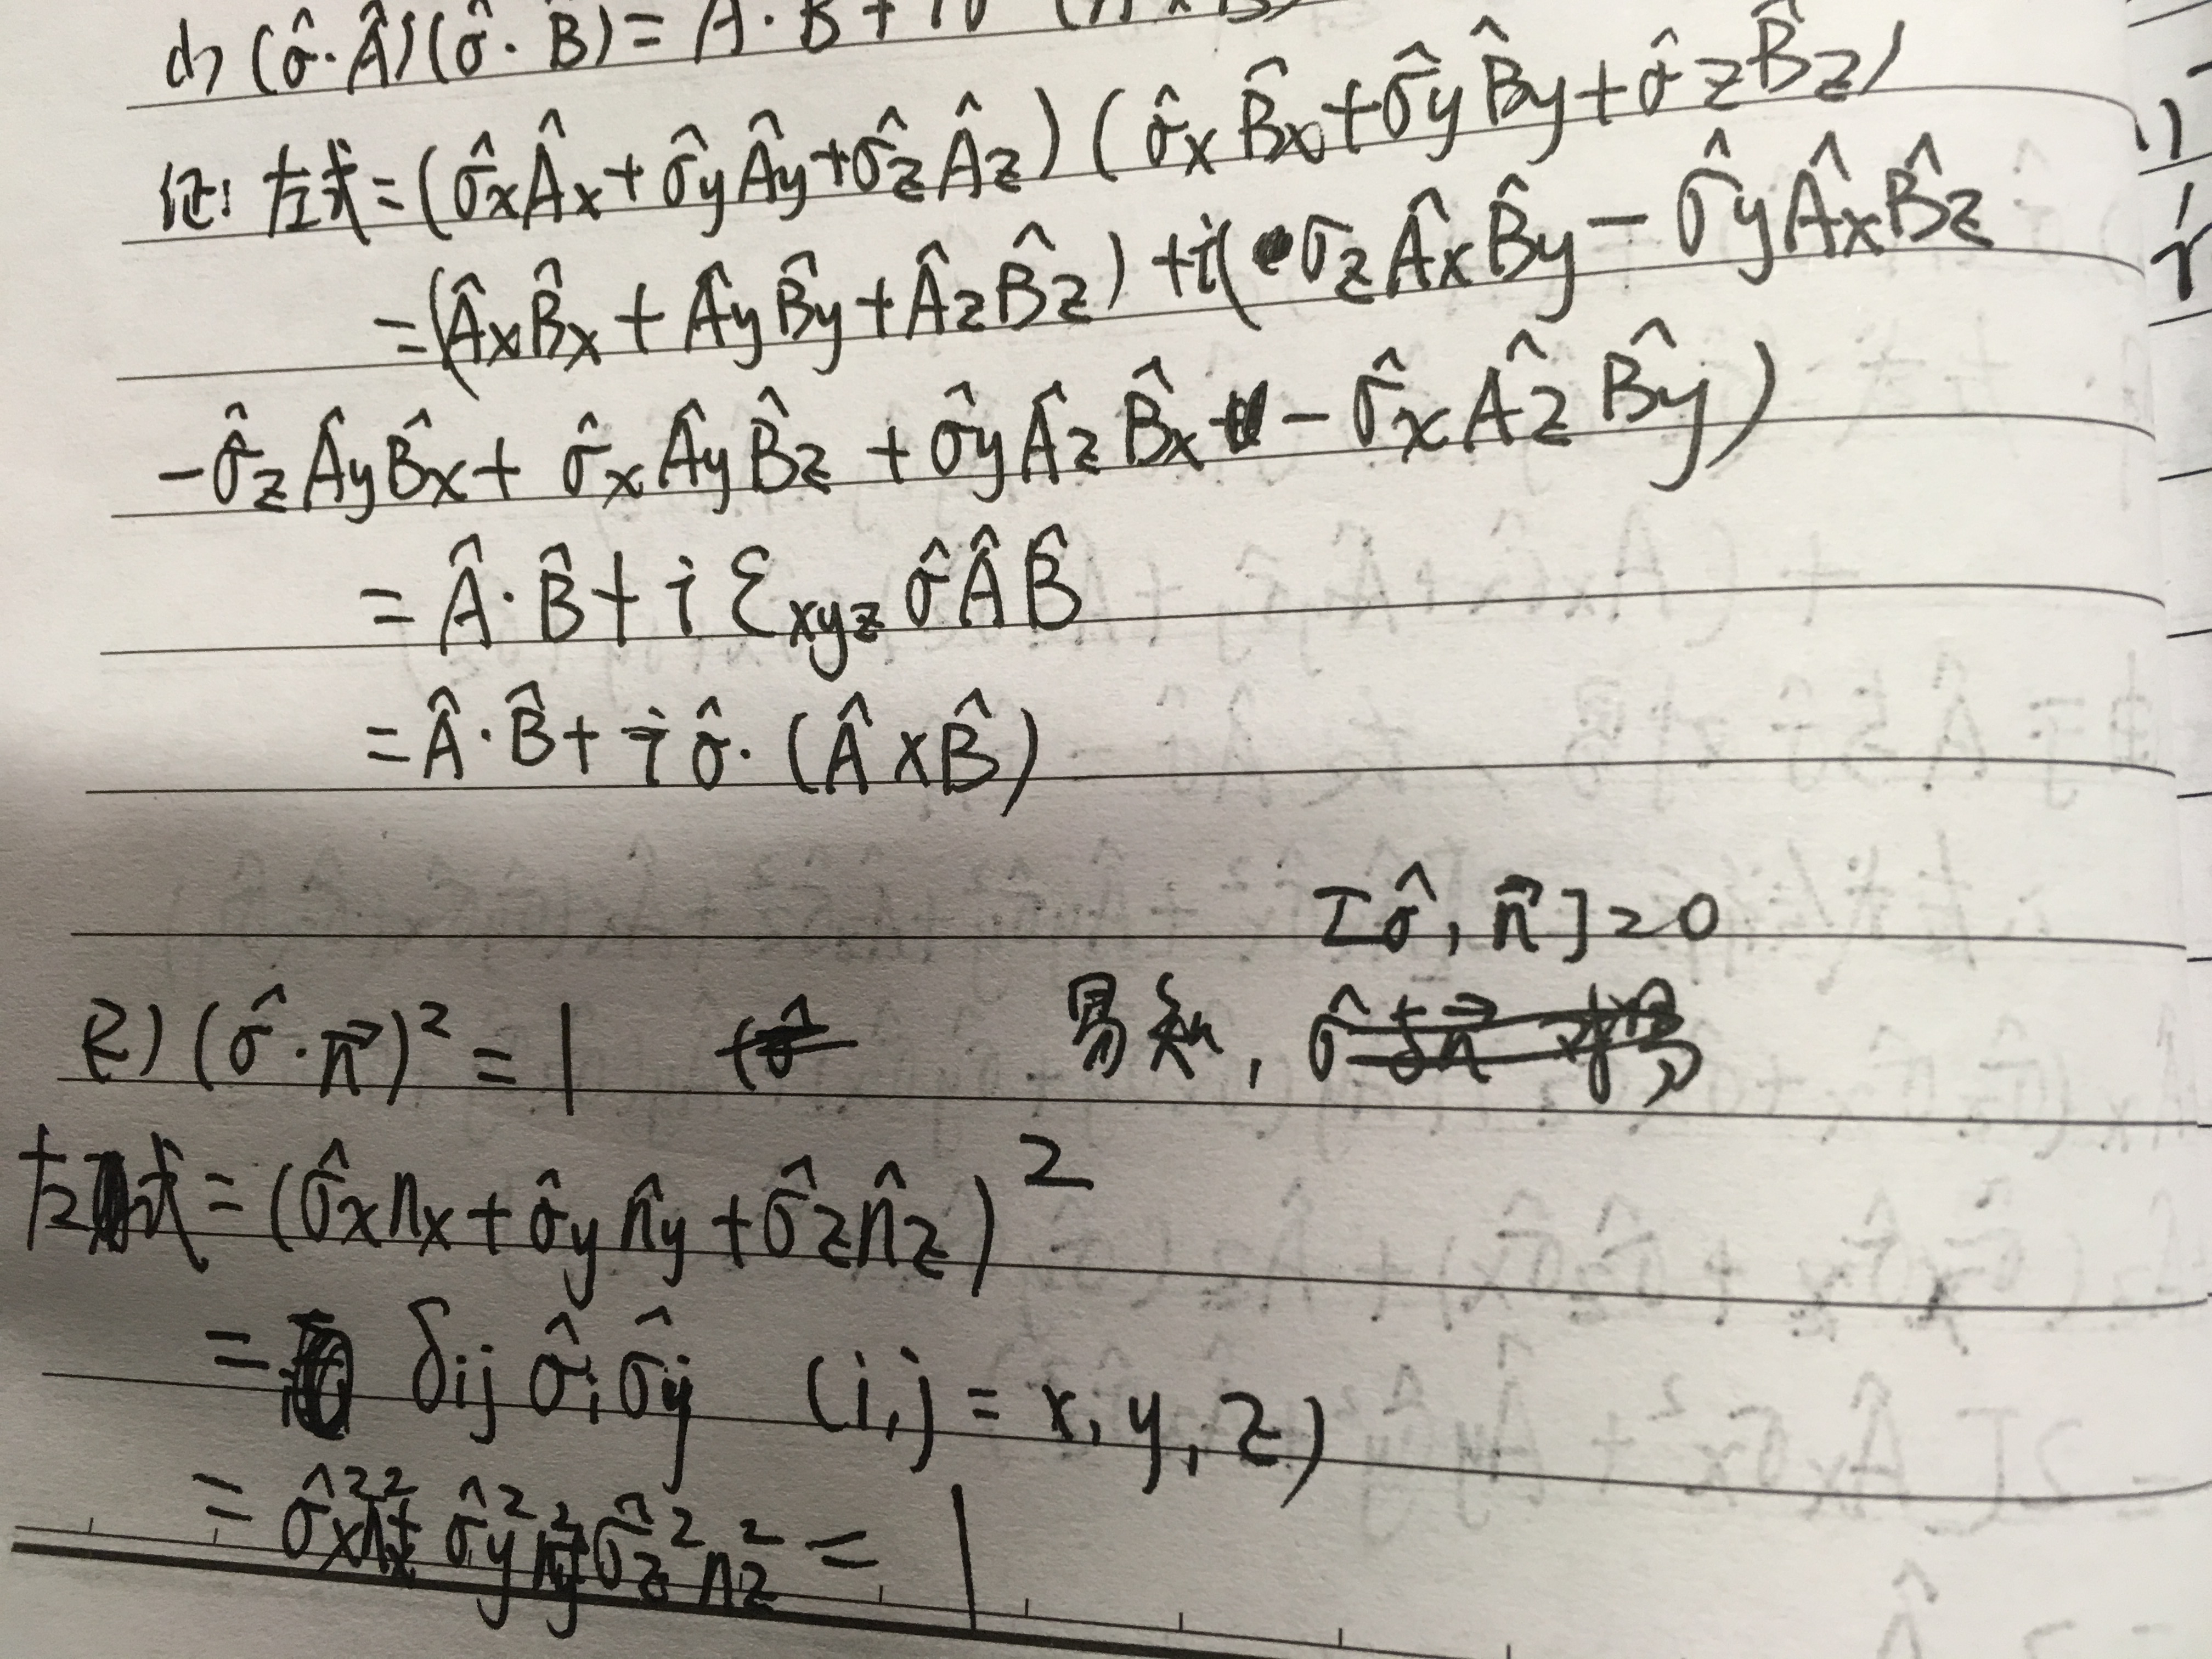 d) (σ̂·Â)(σ̂·B̂) = Â·B̂ + iσ̂·(Â×B̂)
证: 左式=(σ̂xÂx+σ̂yÂy+σ̂zÂz)(σ̂xB̂x+σ̂yB̂y+σ̂zB̂z)
=(ÂxB̂x+ÂyB̂y+ÂzB̂z)+i(σ̂zÂxB̂y-σ̂yÂxB̂z
-σ̂zÂyB̂x+σ̂xÂyB̂z+σ̂yÂzB̂x-σ̂xÂzB̂y)
=Â·B̂+iεxyzσ̂ÂB̂
=Â·B̂+iσ̂·(Â×B̂)
[σ̂, n⃗]=0
e) (σ̂·n⃗)²=1 易知,
左式=(σ̂xnx+σ̂yn̂y+σ̂zn̂z)²
=δijσ̂iσ̂j (i,j=x,y,z)
=σ̂x²nx²+σ̂y²ny²+σ̂z²nz²=1